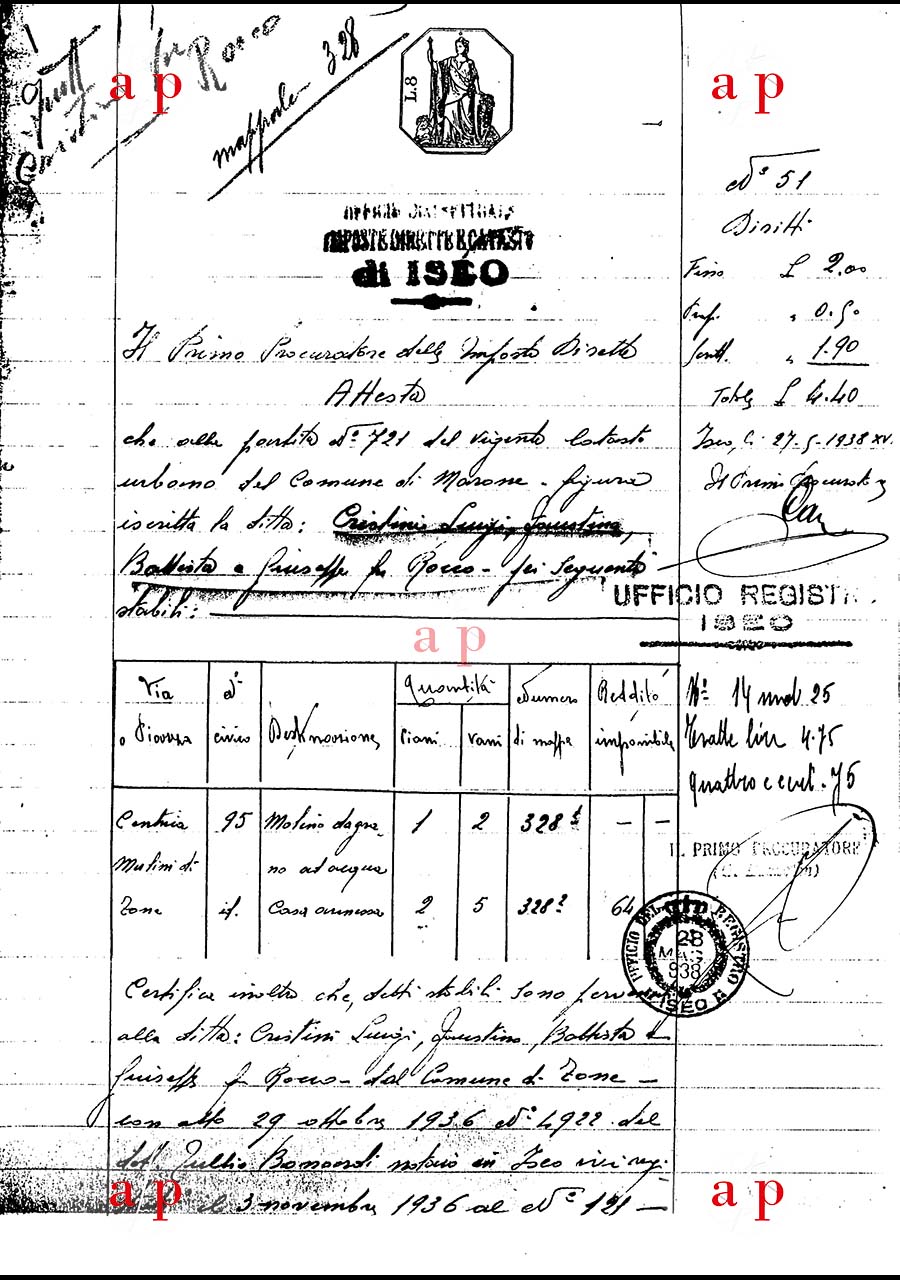 fu
Rocco
mappale 328
L.8
IMPOSTE DIRETTE E CATASTO
di ISEO
Il Primo Procuratore delle Imposte Dirette
Attesta
che alla partita N° 721 del vigente Catasto
urbano del Comune di Marone - figura
iscritta la ditta: Cristini Luigi, Faustino,
Battista e Giuseppe fu Rocco - pei seguenti
stabili:
Via o Piazza
N° civico
Destinazione
Quantità
Piani
Vani
Numero di mappa
Reddito imponibile
95 Molino da gra- 1 2 328 — —
Mulini di no ad acqua
Zone id. Casa annessa 2 5 328² 64
Certifica inoltre che, detti stabili sono
alla ditta: Cristini Luigi, Faustino, Battista e
Giuseppe fu Rocco - dal Comune di Zone —
con atto 29 ottobre 1936 N° 4922 del
dott Tullio Bonardi notaio in Iseo ivi regi-
il 3 novembre 1936 al N° 121 —
N° 51
Diritti
£ 2.00
" 0.50
" 1.90
Totale £ 4.40
Iseo, li 27-5-1938 XV
Il Primo Procuratore
UFFICIO REGISTR
ISEO
N° 14 mod 25
Esatte lire 4.75
quattro e cent. 75
IL PRIMO PROCURATORE
UFFICIO DEL REGISTRO
28
MAG
938
ISEO
a p
a p
a p
a p
a p